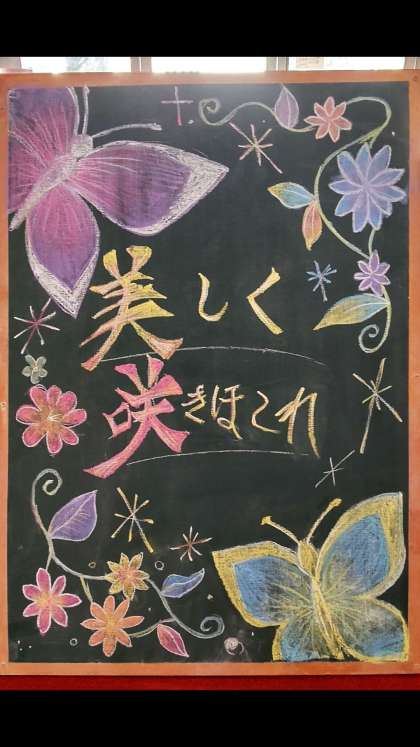 美しく
咲きほこれ